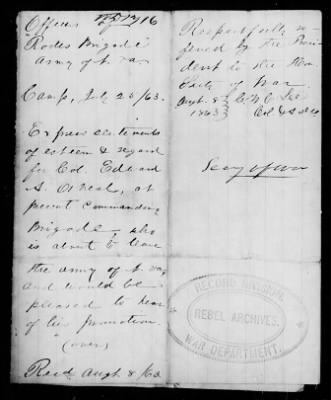 Officers
Rodes Brigade
Army of N. Va.
Camp, July 25/63.
Express sentiments
of esteem & regard
for Col. Edward
A. O'Neal, at
present commanding
Brigade, who
is about to leave
the army of N. Va,
and would be
pleased to hear
of his promotion.
(over)
Recd Augt 8/63
Respectfully re-
ferred by the Presi-
dent to the Hon
Secty of War
Augt. 8
1863
Col & A.D.C.
Secy of War
RECORD DIVISION
REBEL ARCHIVES.
WAR DEPARTMENT.